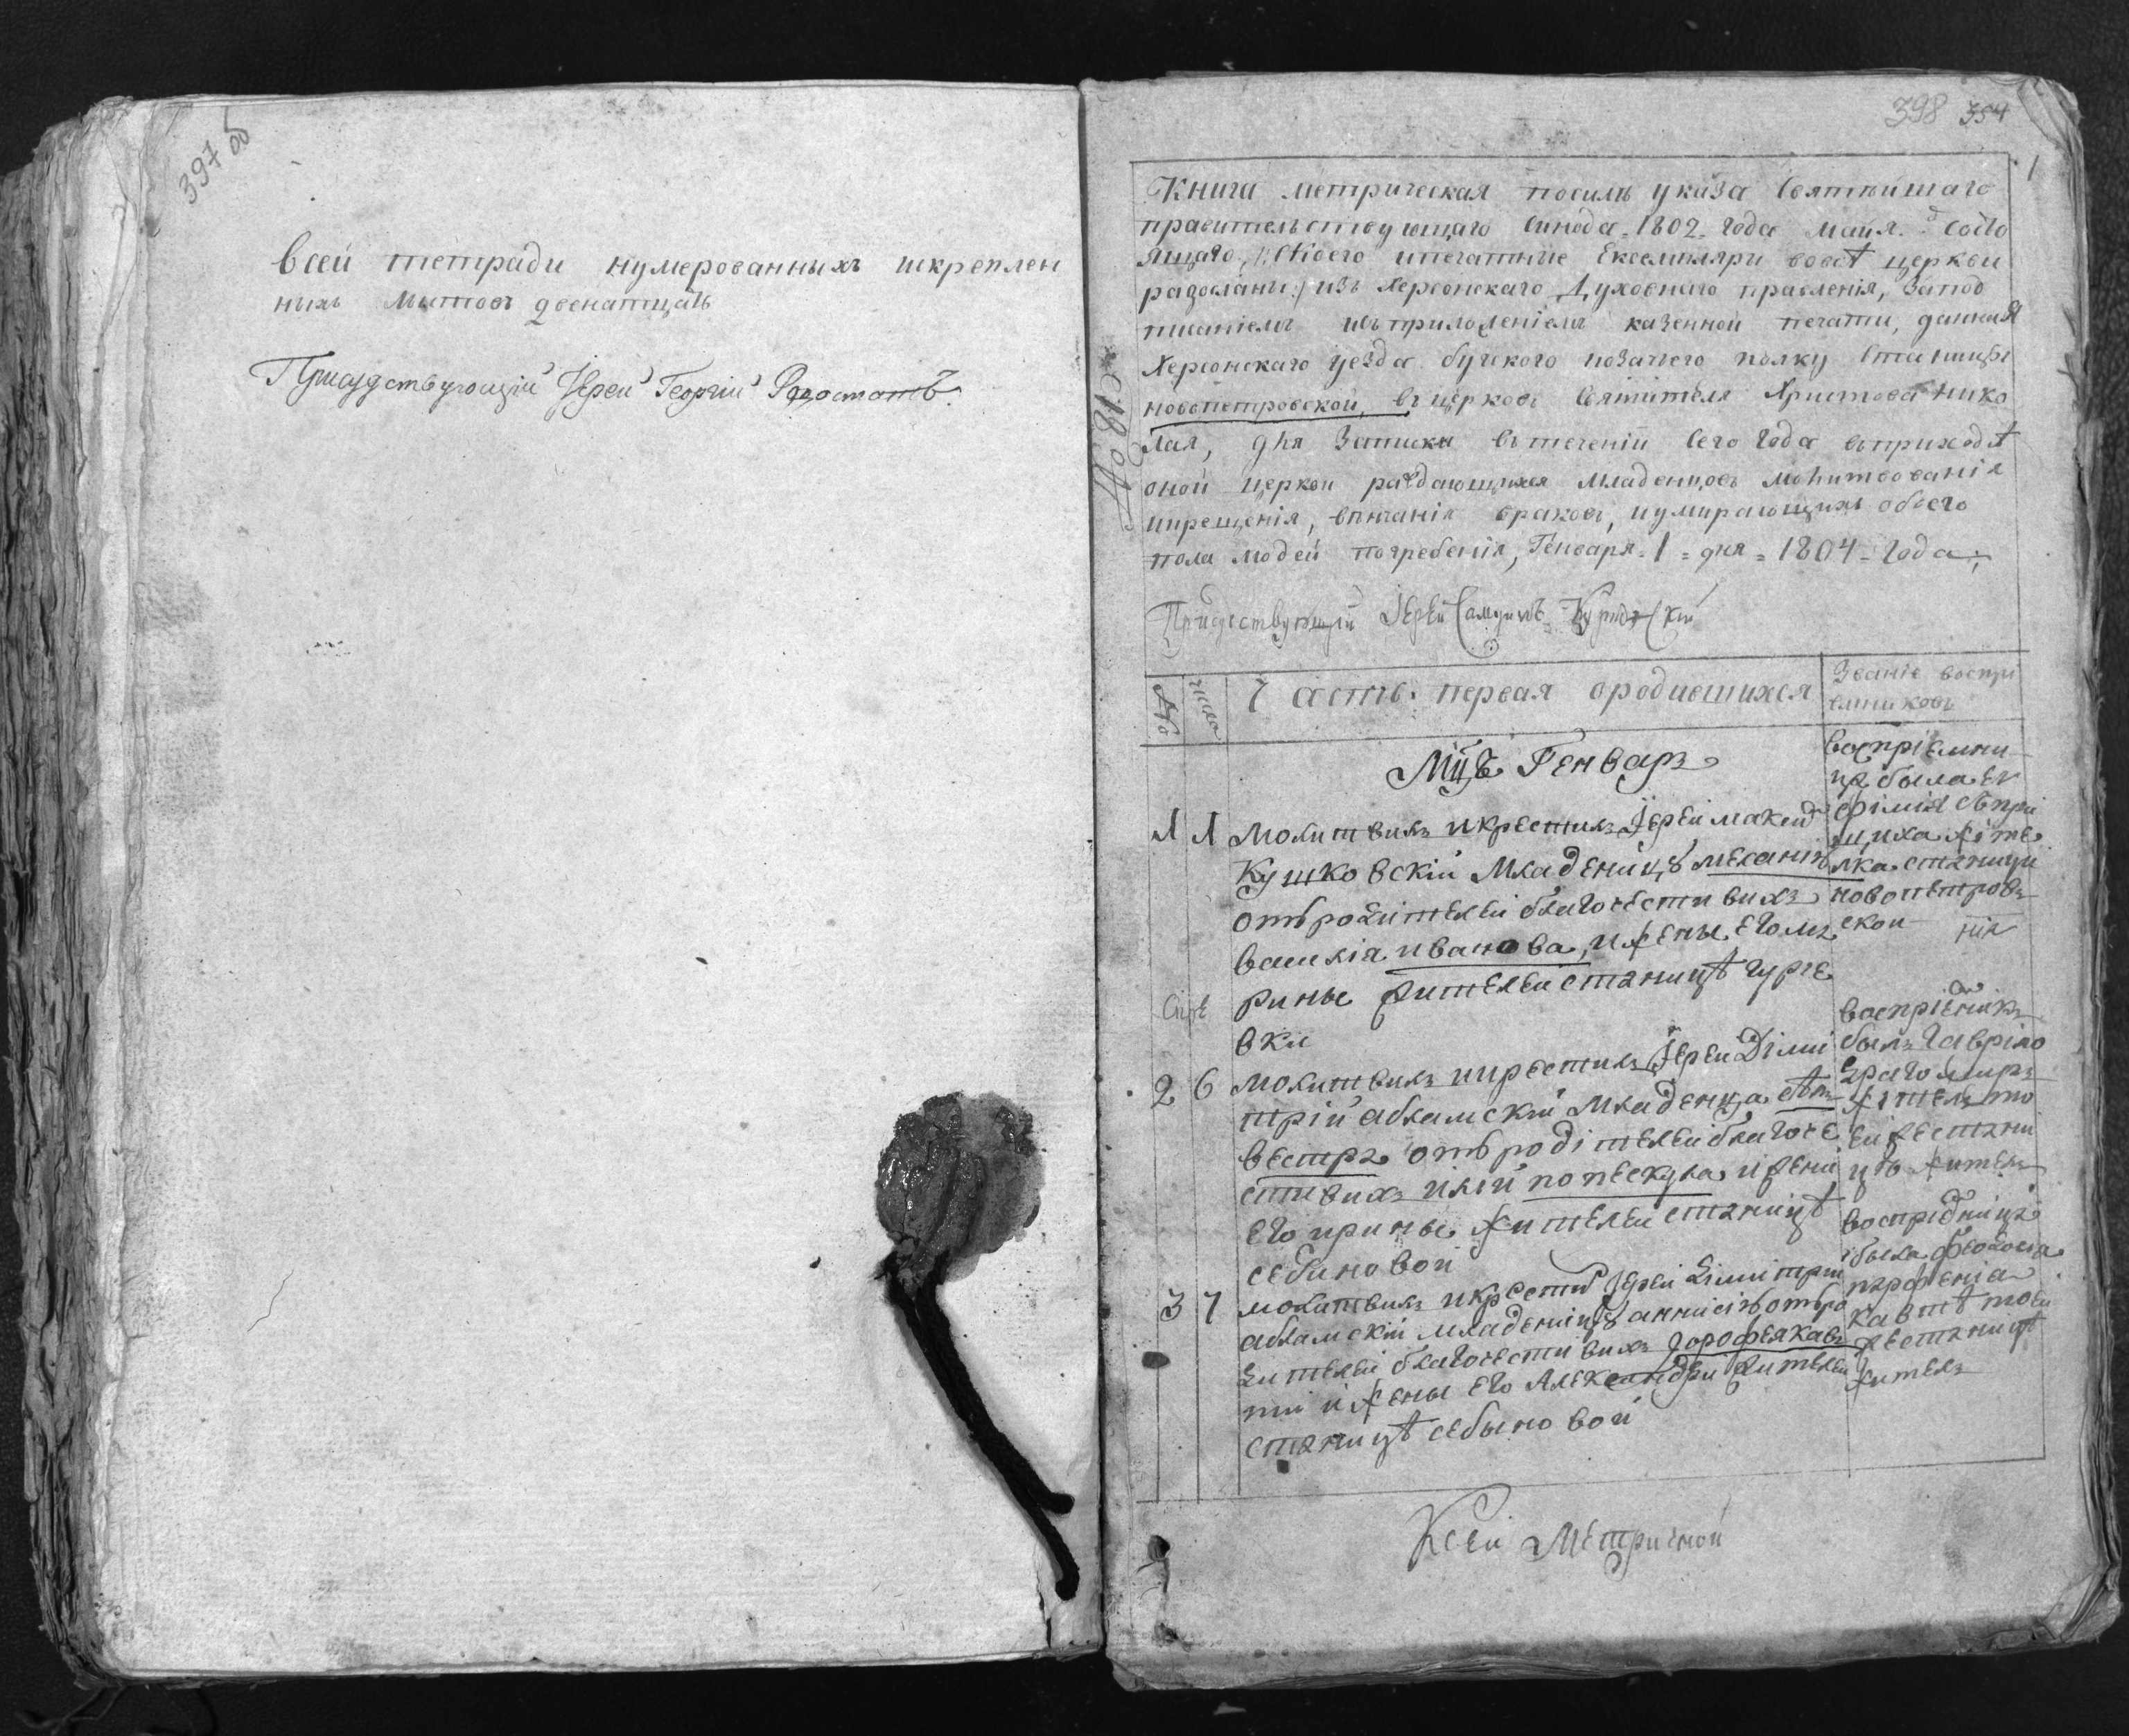 397 об
всей тетради нумерованныхъ искреплен
ныхъ листовъ двенатцать
Присудствующій Іерей Георгій
398 354
1
Книга метрическая посилѣ указа Святѣйшаго
правительствующаго Синода 1802 года майя состо
ящаго, /: скоего ипечатные Екземпляри вовсѣ церкви
разосланы :/ изъ Херсонскаго Духовнаго правленія, запод
писаніемъ исъприложеніемъ казенной печати, данная
Херсонскаго уезда бугского козачего полку Станицы
новопетровской, въ церковь Святителя Христова Нико
лая, для записки втеченіи сего года въприходѣ
оной церкви раждающихся младенцовъ молитвованія
икрещенія, вѣнчанія браковъ, иумирающихъ обоего
пола людей погребенія, Генваря = 1 = дня = 1804 = года;
Присудствующій Іерей
№ числа Часть первая ородившихся Званіе воспрі
емниковъ
Мцъ Генваръ
1 1 молитвилъ икрестилъ Іерей
Кушковскій Младеницу меланію
отъродителей благочестивихъ
василія иванова, ижены его ма
рины жителей станицѣ гурге
вки
восприемни
ца была ев
фимія
жите
лка станици
новопетров
ской
2 6 молитвилъ икрестилъ Іерей Діми
трій абламскій Младенца сіл
вестра отъродітелей благоче
стивихъ иліи попескула ижени
его ирины жителей станицѣ
себиновой
воспріемникъ
былъ гавріло
драгомиръ
житель то
ей же стани
цѣ житель
3 7 молитвилъ икрестил Іерей Димитрій
абламскій младеницу аннисію отъро
дителей благочестивихъ дорофея кав
ти ижены его Александри жителей
станицѣ себыновой
воспріемница
была феодосіа
парфеніа
кавтѣ тоей
же станицѣ
житель
Ксей Метричной